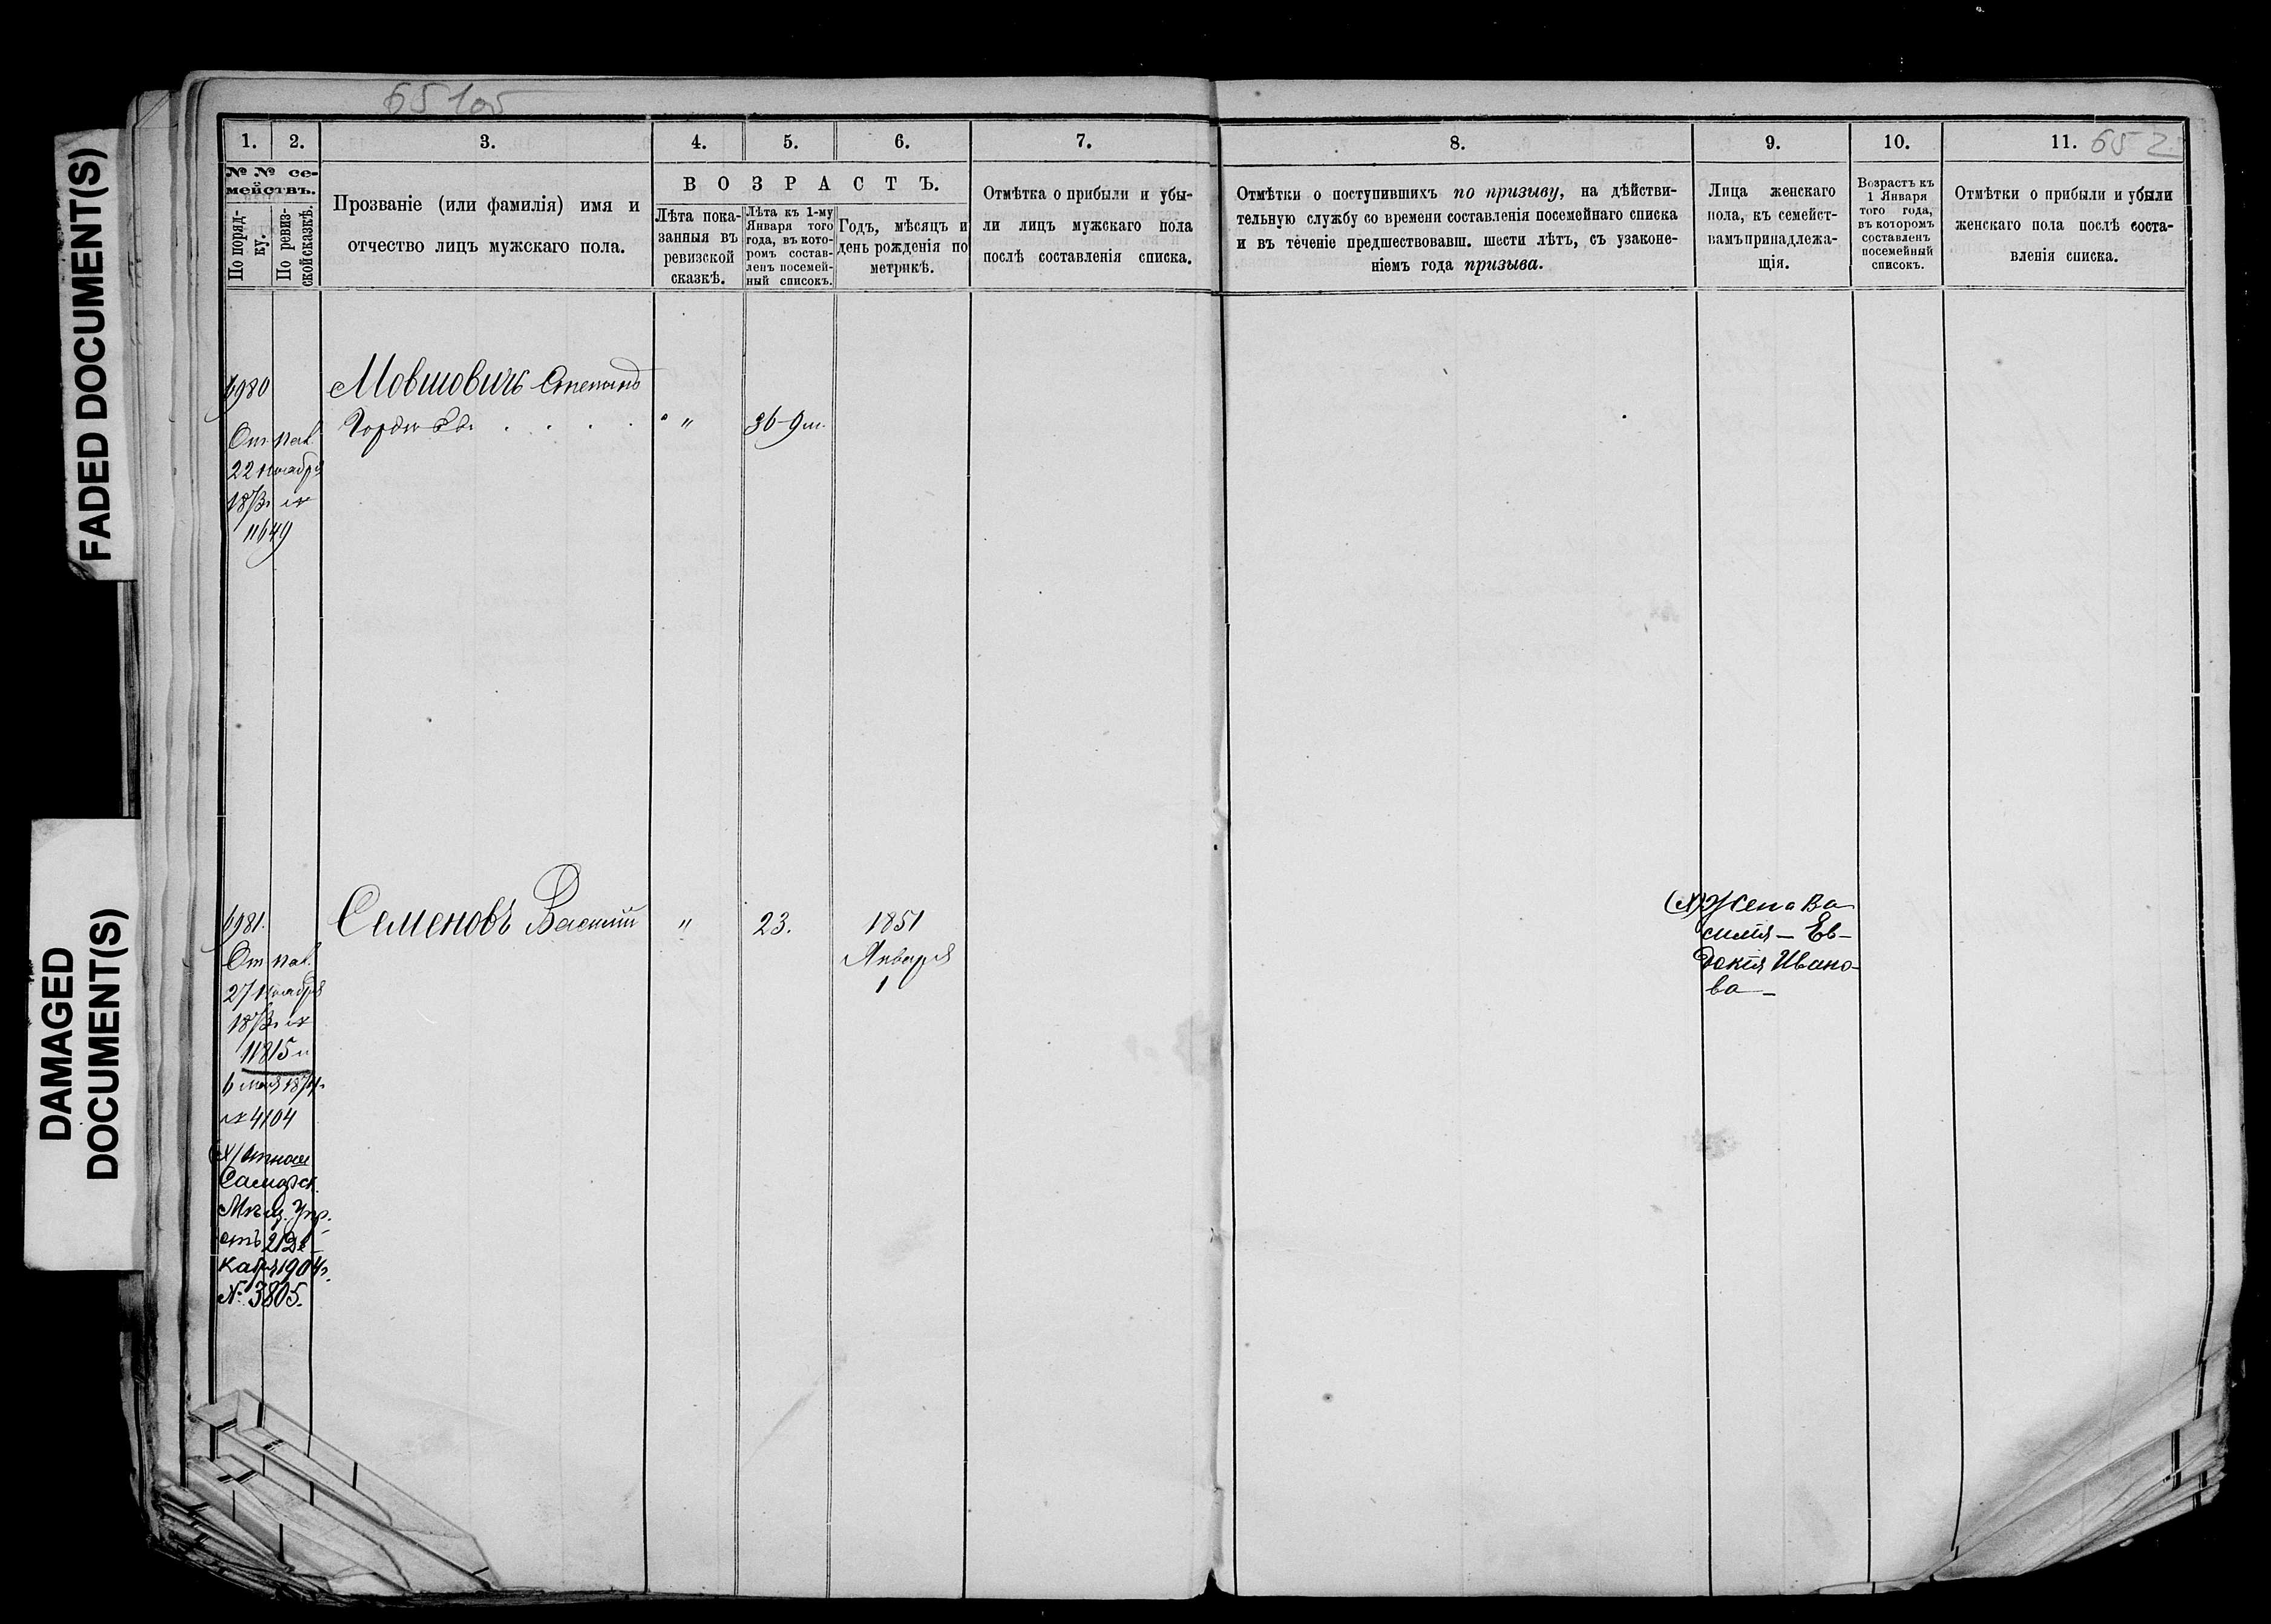 FADED DOCUMENT(S)
DAMAGED
DOCUMENT(S)
65105
652
1.
2.
3.
4.
5.
6.
7.
8.
9.
10.
11.
№ № се-
мействъ.
По поряд-
ку.
По ревиз-
ской сказкѣ.
Прозваніе (или фамилія) имя и
отчество лицъ мужскаго пола.
ВОЗРАСТЪ.
Лѣта пока-
занныя въ
ревизской
сказкѣ.
Лѣта къ 1-му
Января того
года, въ кото-
ромъ состав-
ленъ посемей-
ный списокъ.
Годъ, мѣсяцъ и
день рожденія по
метрикѣ.
Отмѣтка о прибыли и убы-
ли лицъ мужскаго пола
послѣ составленія списка.
Отмѣтки о поступившихъ по призыву, на дѣйстви-
тельную службу со времени составленія посемейнаго списка
и въ теченіе предшествовавш. шести лѣтъ, съ узаконе-
ніемъ года призыва.
Лица женскаго
пола, къ семейст-
вамъ принадлежа-
щія.
Возрастъ къ
1 Января
того года,
въ которомъ
составленъ
посемейный
списокъ.
Отмѣтки о прибыли и убыли
женскаго пола послѣ соста-
вленія списка.
6980
Мовшовичъ Степанъ
" 36-9м.
От. пал.
22 Ноября
1873г №
11649
6981.
Семеновъ Василій
" 23. 1851
Января
1
От. пал.
27 Ноября
1873г №
11815 и
6 мая 1874г
№ 4104
(х) Отнош
Самарск.
Мѣщ. Упр.
отъ 21 Де-
кабря 1904г.
№ 3805.
(х) Жена Ва
силія — Ев-
докія Ивано-
ва —